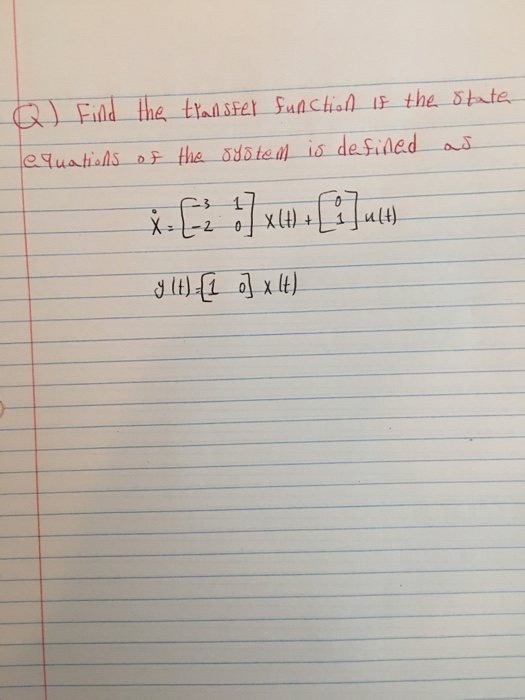 Q) Find the transfer function if the state
equations of the system is defined as
ẋ = [-3 1; -2 0] x(t) + [0; 1] u(t)
y(t) = [1 0] x(t)